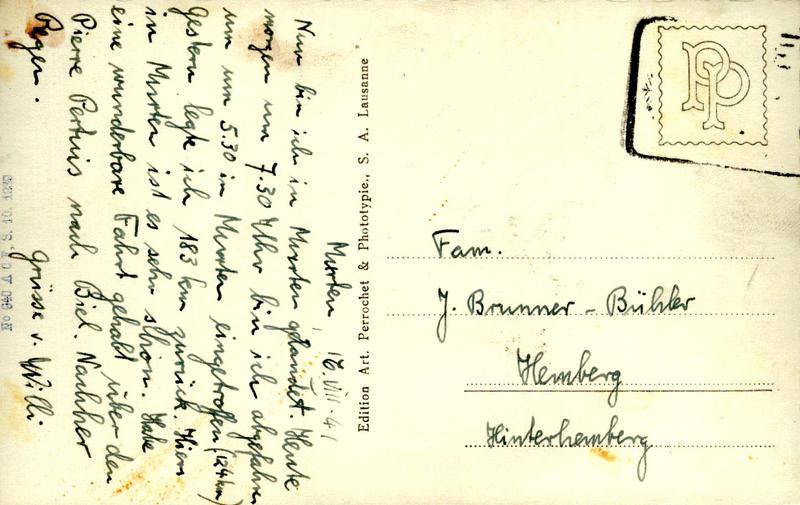 Murten, 16. VIII. 41
Nun bin ich in Murten gelandet. Heute
morgen um 7.30 Uhr bin ich abgefahren
um um 5.30 in Murten eingetroffen (124 km)
Gestern legte ich 183 km zurück. Hier
in Murten ist es sehr schön. Habe
eine wunderbare Fahrt gehabt über den
Pierre Pertuis nach Biel. Nachher
Regen.
Grüsse v. Willi.
Edition Art. Perrochet & Phototypie., S. A. Lausanne
PP
Fam.
J. Brunner - Bühler
Hemberg
Hinterhemberg